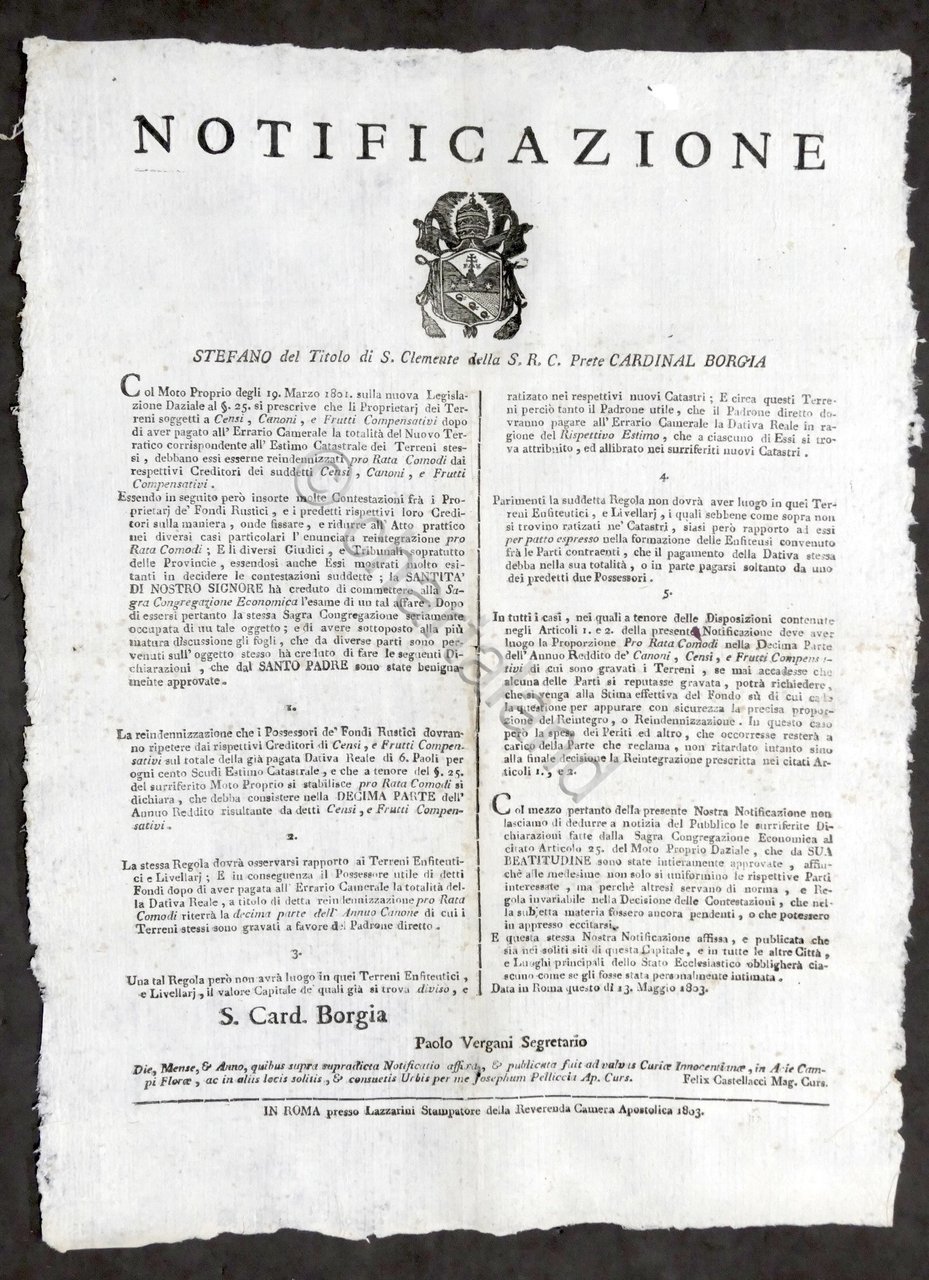 NOTIFICAZIONE
STEFANO del Titolo di S. Clemente della S. R. C. Prete CARDINAL BORGIA
Col Moto Proprio degli 19. Marzo 1801. sulla nuova Legisla-
zione Daziale al §. 25. si prescrive che li Proprietarj dei Ter-
reni soggetti a Censi, Canoni, e Frutti Compensativi dopo
di aver pagato all' Errario Camerale la totalità del Nuovo Ter-
ratico corrispondente all' Estimo Catastrale dei Terreni stes-
si, debbano essi esserne reindennizzati pro Rata Comodi dai
respettivi Creditori dei suddetti Censi, Canoni, e Frutti
Compensativi.
Essendo in seguito però insorte molte Contestazioni frà i Pro-
prietarj de' Fondi Rustici, e i predetti rispettivi loro Cre-
ditori sulla maniera, onde fissare, e ridurre all' Atto prattico
nei diversi casi particolari l'enunciata reintegrazione pro
Rata Comodi; E li diversi Giudici, e Tribunali sopratutto
delle Provincie, essendosi anche Essi mostrati molto esi-
tanti in decidere le contestazioni suddette; la SANTITA'
DI NOSTRO SIGNORE hà creduto di commettere alla Sa-
gra Congregazione Economica l'esame di un tal affare. Dopo
di essersi pertanto la stessa Sagra Congregazione seriamente
occupata di un tale oggetto; e di avere sottoposto alla più
matura discussione gli fogli, che da diverse parti sono per-
venuti sull'oggetto stesso hà creduto di fare le seguenti Di-
chiarazioni, che dal SANTO PADRE sono state benigna-
mente approvate.
1.
La reindennizzazione che i Possessori de' Fondi Rustici dovran-
no ripetere dai rispettivi Creditori di Censi, e Frutti Compen-
sativi sul totale della già pagata Dativa Reale di 6. Paoli per
ogni cento Scudi Estimo Catastrale, e che a tenore del §. 25.
del surriferito Moto Proprio si stabilisce pro Rata Comodi si
dichiara, che debba consistere nella DECIMA PARTE dell'
Annuo Reddito risultante da detti Censi, e Frutti Compen-
sativi.
2.
La stessa Regola dovrà osservarsi rapporto ai Terreni Enfiteuti-
ci e Livellarj; E in conseguenza il Possessore utile di detti
Fondi dopo di aver pagata all' Errario Camerale la totalità del-
la Dativa Reale, a titolo di detta reindennizzazione pro Rata
Comodi riterrà la decima parte dell' Annuo Canone di cui i
Terreni stessi sono gravati a favore del Padrone diretto.
3.
Una tal Regola però non avrà luogo in quei Terreni Enfiteutici,
e Livellarj, il valore Capitale de' quali già si trova diviso, e
ratizato nei respettivi nuovi Catastri; E circa questi Terre-
ni perciò tanto il Padrone utile, che il Padrone diretto do-
vranno pagare all' Errario Camerale la Dativa Reale in ra-
gione del Rispettivo Estimo, che a ciascuno di Essi si tro-
va attribuito, ed allibrato nei surriferiti nuovi Catastri.
4.
Parimenti la suddetta Regola non dovrà aver luogo in quei Ter-
reni Enfiteutici, e Livellarj, i quali sebbene come sopra non
si trovino ratizati ne' Catastri, siasi però rapporto ad essi
per patto espresso nella formazione delle Enfiteusi convenuto
frà le Parti contraenti, che il pagamento della Dativa stessa
debba nella sua totalità, o in parte pagarsi soltanto da uno
dei predetti due Possessori.
5.
In tutti i casi, nei quali a tenore delle Disposizioni contenute
negli Articoli 1. e 2. della presente Notificazione deve aver
luogo la Proporzione Pro Rata Comodi nella Decima Parte
dell' Annuo Reddito de' Canoni, Censi, e Frutti Compensa-
tivi di cui sono gravati i Terreni, se mai accadesse che
alcuna delle Parti si reputasse gravata, potrà richiedere,
che si venga alla Stima effettiva del Fondo sù di cui cade
la questione per appurare con sicurezza la precisa propor-
zione del Reintegro, o Reindennizzazione. In questo caso
però la spesa dei Periti ed altro, che occorresse resterà a
carico della Parte che reclama, non ritardato intanto sino
alla finale decisione la Reintegrazione prescritta nei citati Ar-
ticoli 1., e 2.
Col mezzo pertanto della presente Nostra Notificazione non
lasciamo di dedurre a notizia del Pubblico le surriferite Di-
chiarazioni fatte dalla Sagra Congregazione Economica al
citato Articolo 25. del Moto Proprio Daziale, che da SUA
BEATITUDINE sono state intieramente approvate, affin-
chè alle medesime non solo si uniformino le rispettive Parti
interessate, ma perchè altresì servano di norma, e Re-
gola invariabile nella Decisione delle Contestazioni, che nel-
la subjetta materia fossero ancora pendenti, o che potessero
in appresso eccitarsi.
E questa stessa Nostra Notificazione affissa, e publicata che
sia nei soliti siti di questa Capitale, e in tutte le altre Città,
e Luoghi principali dello Stato Ecclesiastico obbligherà cia-
scuno come se gli fosse stata personalmente intimata.
Data in Roma questo dì 13. Maggio 1803.
S. Card. Borgia
Paolo Vergani Segretario
Die, Mense, & Anno, quibus supra supradicta Notificatio affixa, & publicata fuit ad valvas Curiæ Innocentianæ, in Acie Cam-
pi Floræ, ac in aliis locis solitis, & consuetis Urbis per me Josephum Pelliccia Ap. Curs. Felix Castellacci Mag. Curs.
IN ROMA presso Lazzarini Stampatore della Reverenda Camera Apostolica 1803.